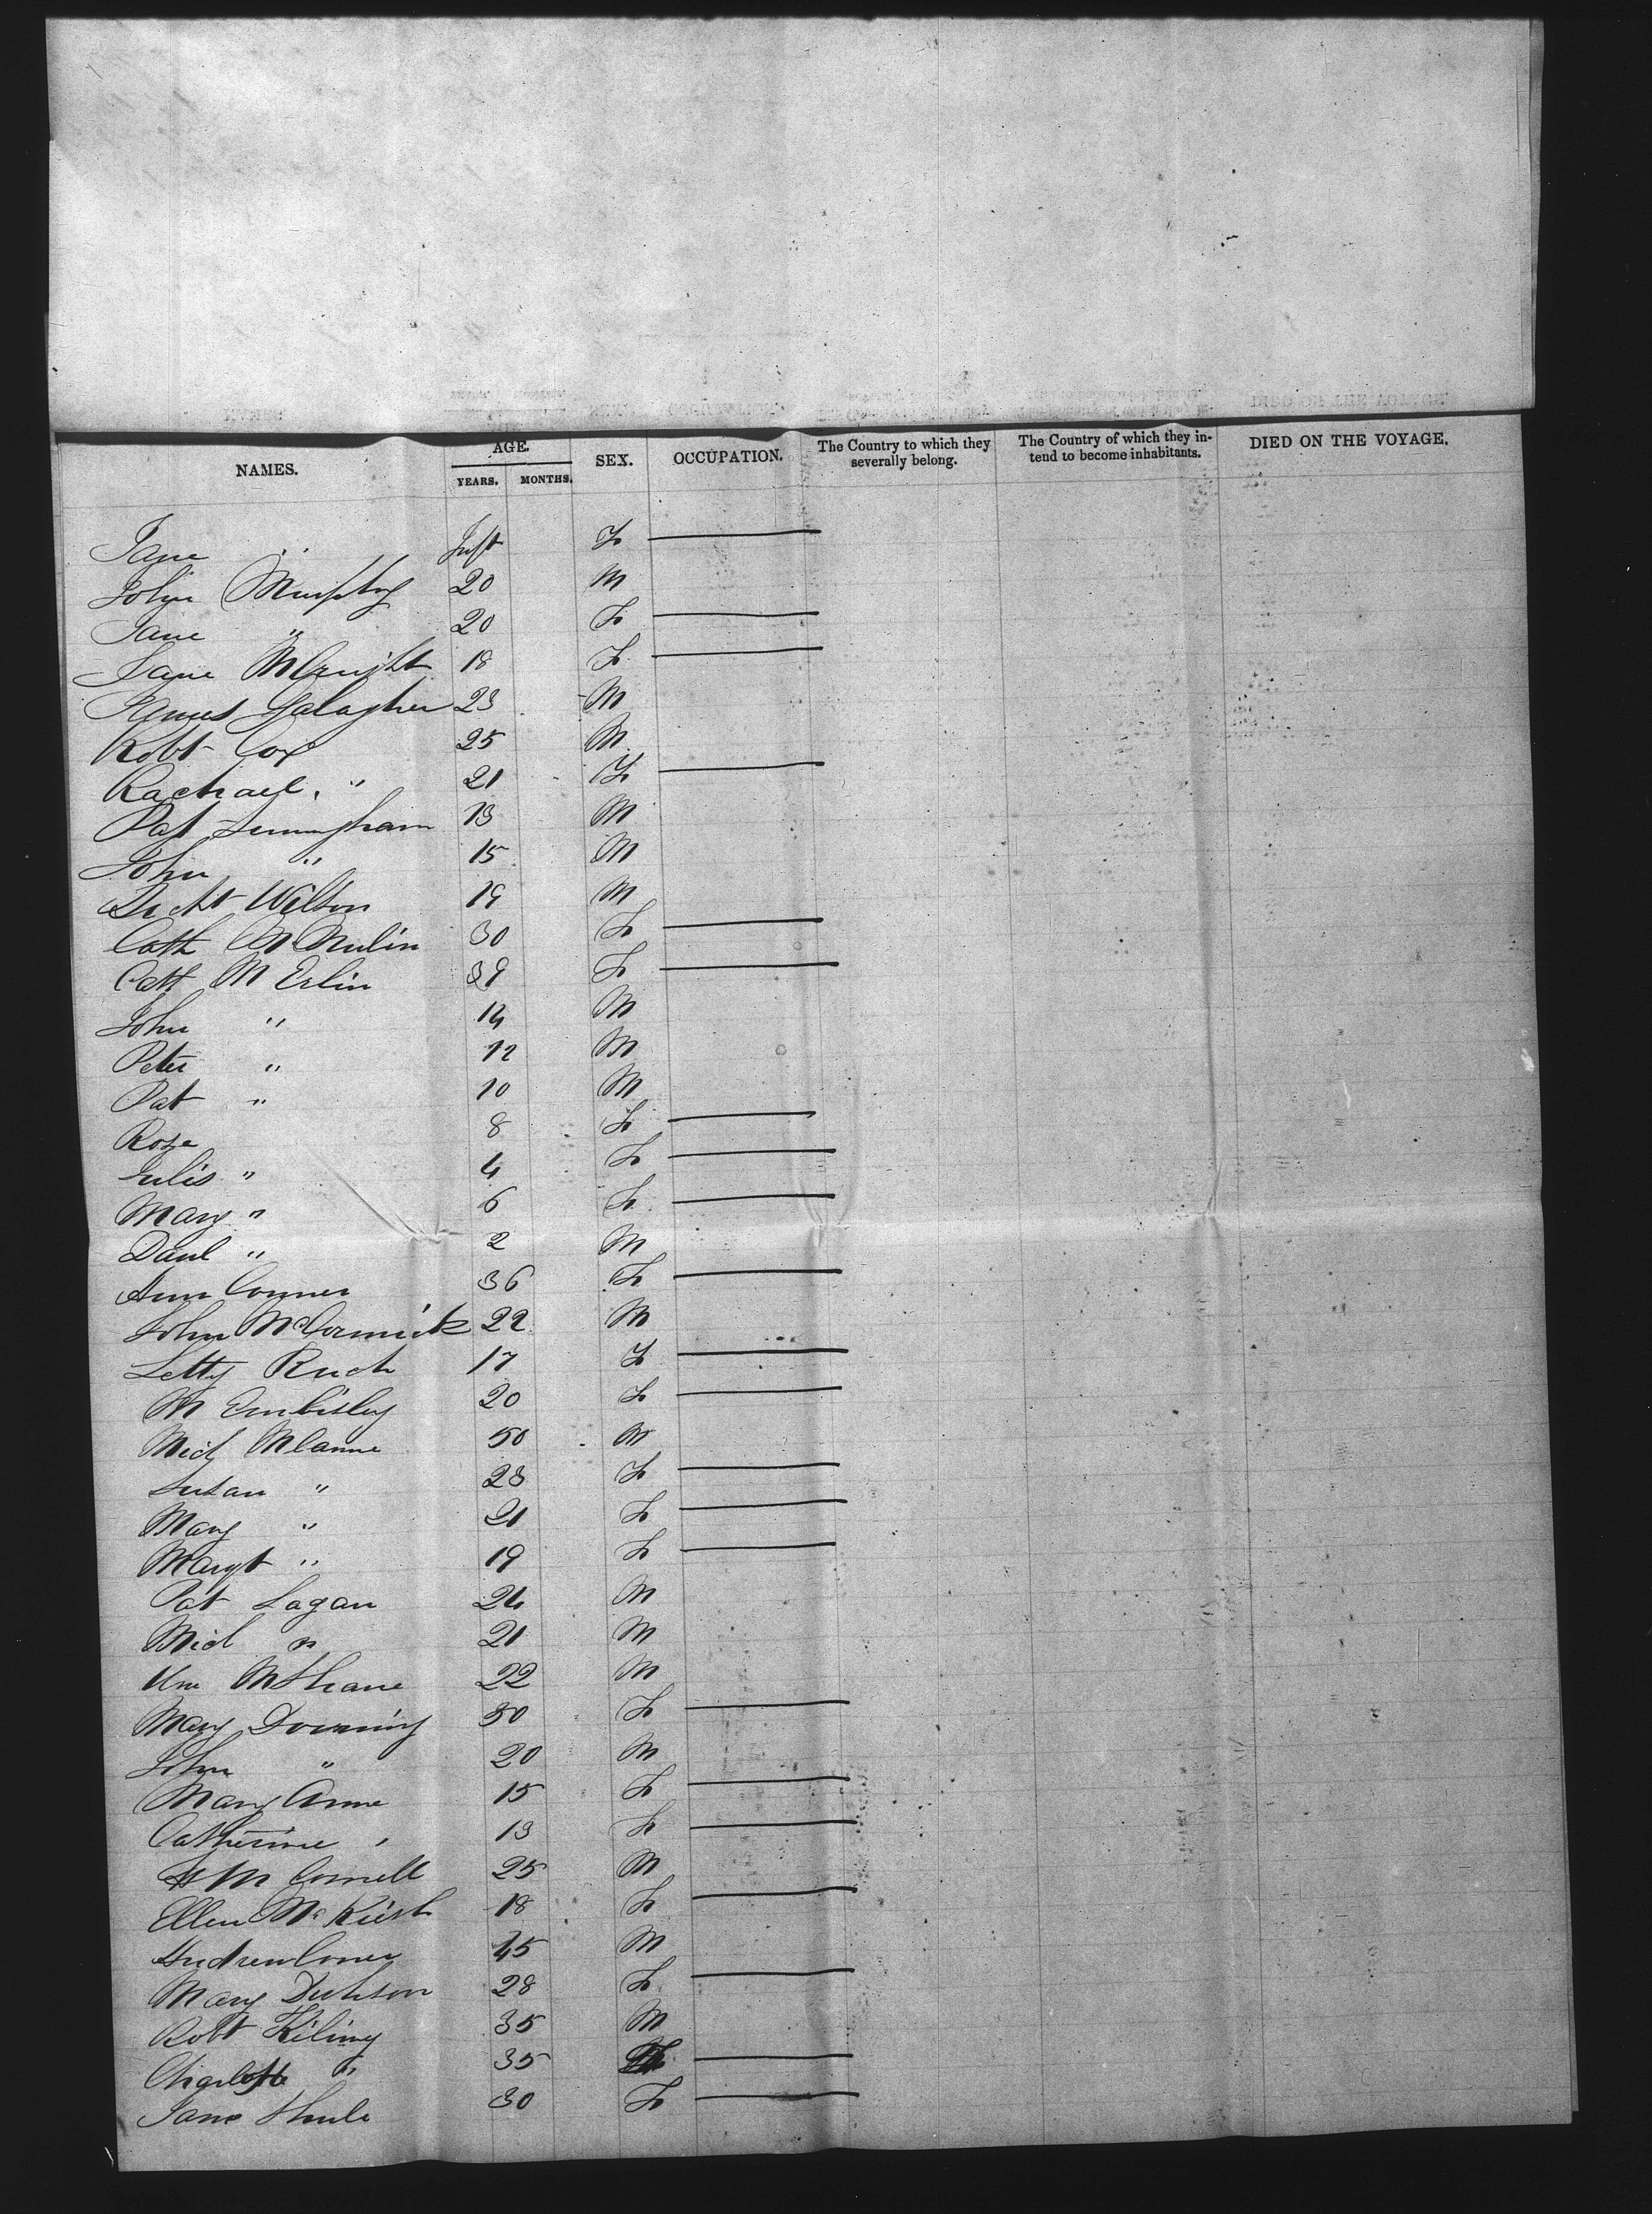 NAMES. AGE. YEARS. MONTHS. SEX. OCCUPATION. The Country to which they severally belong. The Country of which they intend to become inhabitants. DIED ON THE VOYAGE.
Jane " Inft F
John Murphy 20 M
Jane " 20 F
Jane 18 F
James Galagher 23 M
Robt Cox 25 M
Rachael " 21 F
Pat 13 M
John " 15 M
Wilson 19 M
Cath 30 F
Cath M Erlin 39 F
John " 14 M
Peter " 12 M
Pat " 10 M
Rose 8 F
" 4 F
Mary " 6 F
Danl " 2 M
Ann Conner 36 F
John McCormick 22 M
Letty 17 F
M 20 F
Mich 50 M
Susan " 23 F
Mary " 21 F
Margt " 19 F
Pat Lagan 24 M
Mich " 21 M
Wm McShane 22 M
Mary Downing 50 F
John " 20 M
Mary Anne 15 F
Catherine " 13 F
M Connell 25 M
Ellen Mc 18 F
Andrew 45 M
Mary 28 F
Robt 35 M
Charlotte " 35 F
Jane 30 F